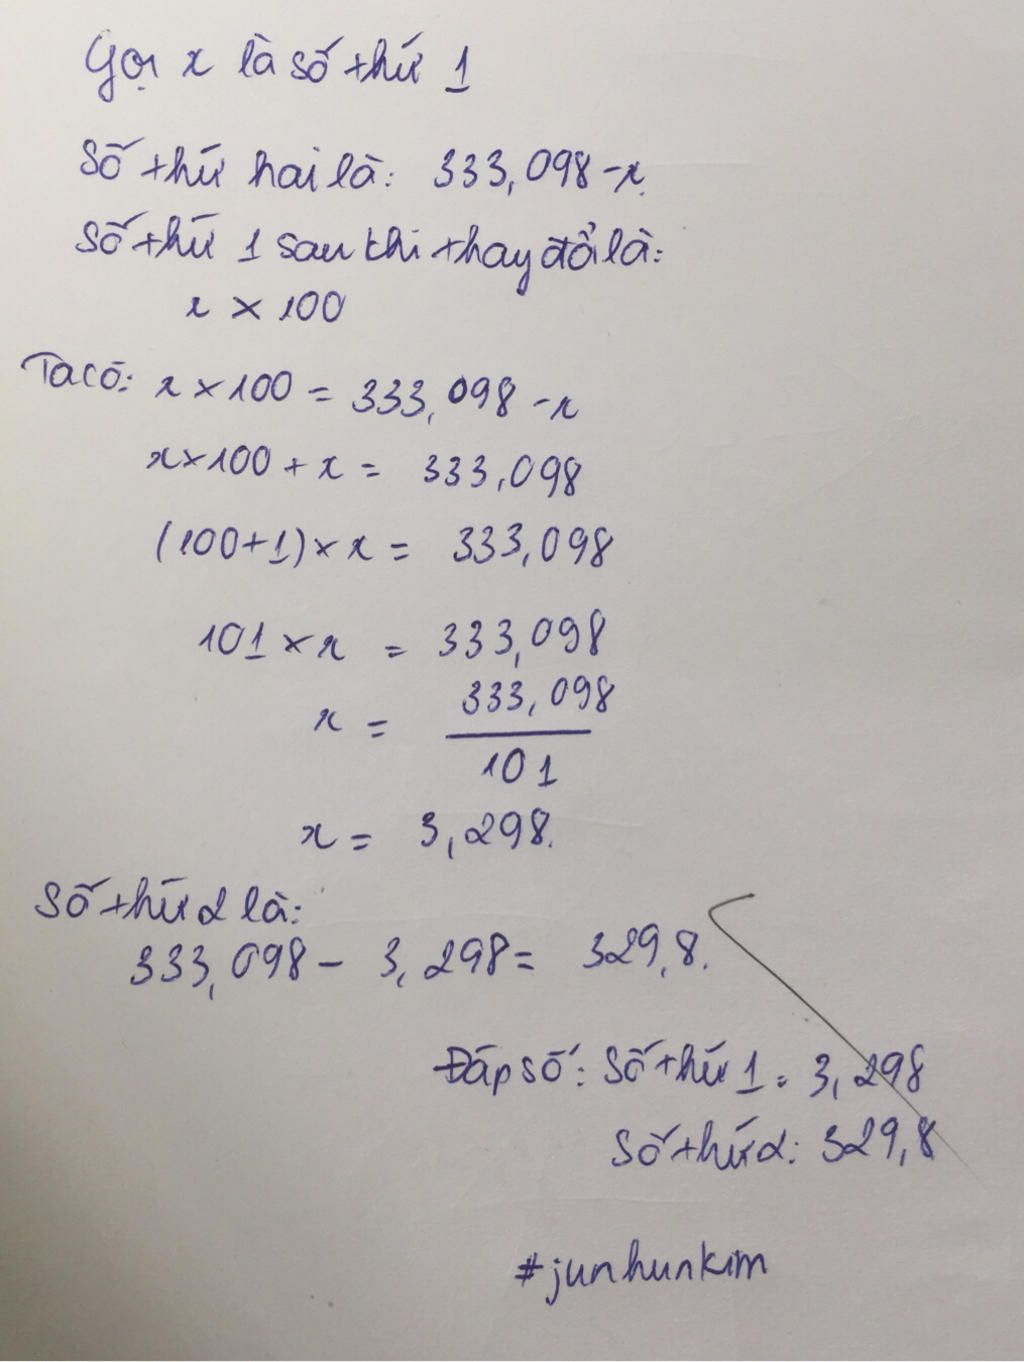 Gọi x là số thứ 1
Số thứ hai là: 333,098 - x.
Số thứ 1 sau khi thay đổi là:
x × 100
Ta có: x × 100 = 333,098 - x
x × 100 + x = 333,098
(100 + 1) × x = 333,098
101 × x = 333,098
x = 333,098
101
x = 3,298.
Số thứ 2 là:
333,098 - 3,298 = 329,8.
Đáp số: Số thứ 1: 3,298
Số thứ 2: 329,8
#junhunkim